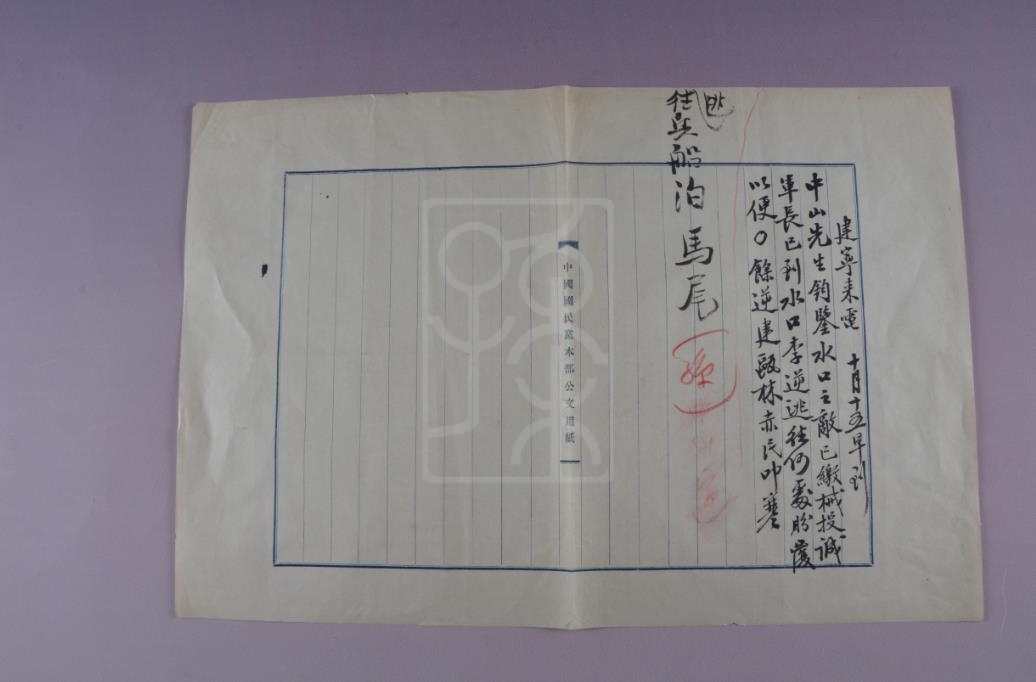 建寧來電 十月十五早到
中山先生鈞鑒水口之敵已繳械投誠
軍長已到水口李逆逃往何處盼覆
以便〇餘逆建甌林赤民叩
逃
往兵船泊馬尾
孫
中國國民黨本部公文用紙